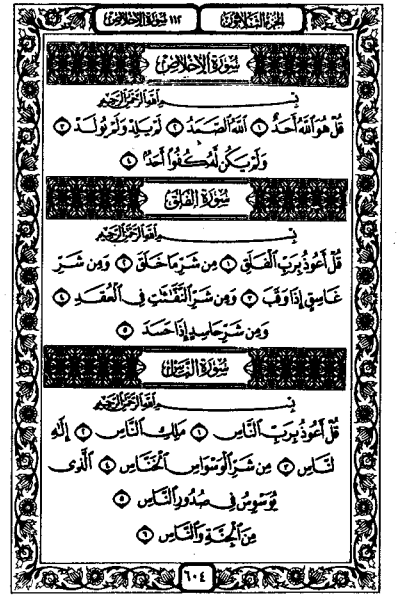 الجزء الثلاثون ١١٢ سورة الإخلاص
سُورَةُ الإِخْلَاصِ
بِسْمِ ٱللَّهِ ٱلرَّحْمَٰنِ ٱلرَّحِيمِ
قُلْ هُوَ ٱللَّهُ أَحَدٌ ١ ٱللَّهُ ٱلصَّمَدُ ٢ لَمْ يَلِدْ وَلَمْ يُولَدْ ٣
وَلَمْ يَكُن لَّهُۥ كُفُوًا أَحَدٌۢ ٤
سُورَةُ الفَلَقِ
بِسْمِ ٱللَّهِ ٱلرَّحْمَٰنِ ٱلرَّحِيمِ
قُلْ أَعُوذُ بِرَبِّ ٱلْفَلَقِ ١ مِن شَرِّ مَا خَلَقَ ٢ وَمِن شَرِّ
غَاسِقٍ إِذَا وَقَبَ ٣ وَمِن شَرِّ ٱلنَّفَّٰثَٰتِ فِى ٱلْعُقَدِ ٤
وَمِن شَرِّ حَاسِدٍ إِذَا حَسَدَ ٥
سُورَةُ النَّاسِ
بِسْمِ ٱللَّهِ ٱلرَّحْمَٰنِ ٱلرَّحِيمِ
قُلْ أَعُوذُ بِرَبِّ ٱلنَّاسِ ١ مَلِكِ ٱلنَّاسِ ٢ إِلَٰهِ
ٱلنَّاسِ ٣ مِن شَرِّ ٱلْوَسْوَاسِ ٱلْخَنَّاسِ ٤ ٱلَّذِى
يُوَسْوِسُ فِى صُدُورِ ٱلنَّاسِ ٥
مِنَ ٱلْجِنَّةِ وَٱلنَّاسِ ٦
٦٠٤